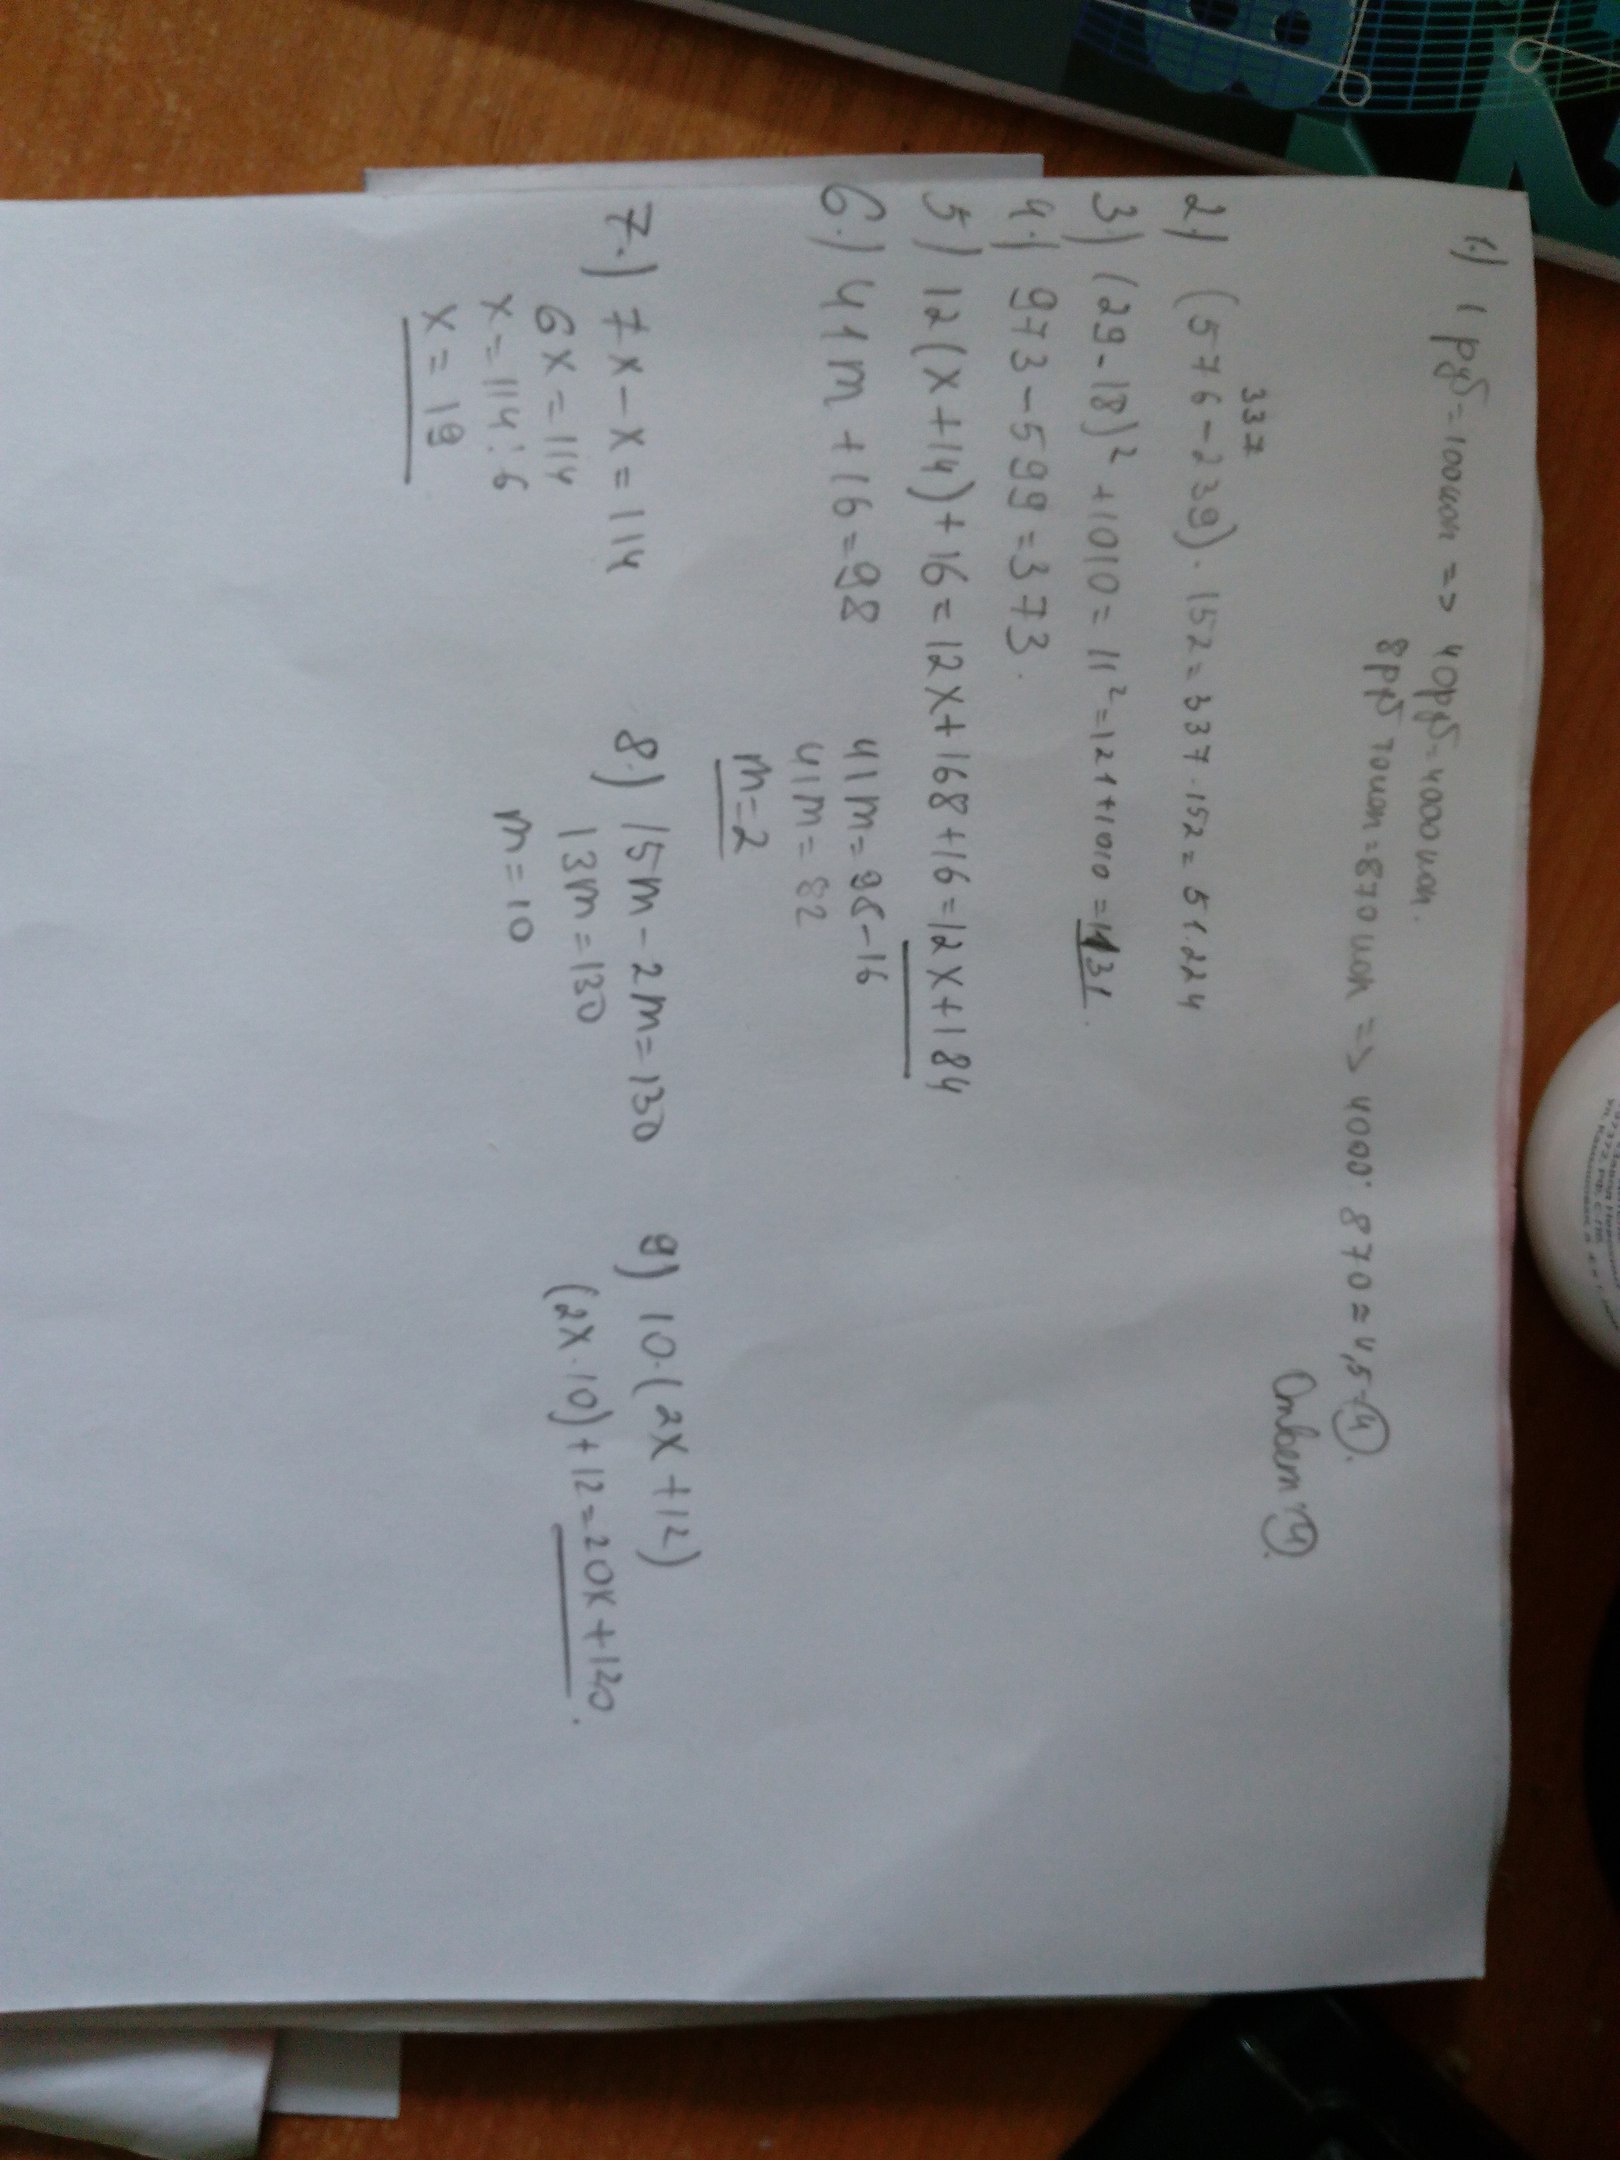 1.) 1 руб = 100коп => 40руб = 4000 коп.
8 руб 70коп = 870 коп => 4000 : 870 ≈ 4,5 ④.
Ответ: ④.
337
2.) (576-239) · 152 = 337 · 152 = 51.224
3.) (29-18)² + 1010 = 11² = 121+1010 = 1131.
4.) 973 - 599 = 373.
5) 12(x+14) + 16 = 12x + 168 + 16 = 12x + 184
6.) 41m + 16 = 98
41m = 98-16
41m = 82
m=2
7.) 7x - x = 114
6x = 114
x = 114 : 6
x = 19
8.) 15m - 2m = 130
13m = 130
m = 10
9) 10·(2x+12)
(2x·10) + 12 = 20x + 120.